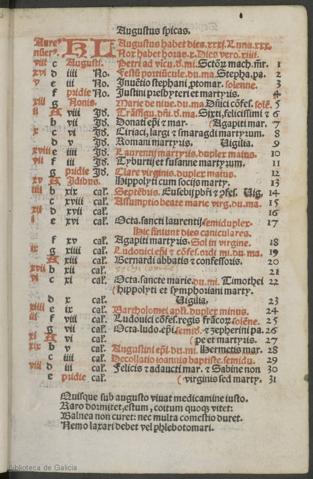 Augustus spicas.
KL Augustus habet dies.xxxi. Luna.xxx.
Nox habet horas.x. Dies vero.xiiii.
viii c Augusti. Petri ad vĩcu.d.mi. Sctõꝝ mach.mr. 1
xvi d iiii No. Stepha.pa. 2
v e iii No. Inuẽtio stephani, ptomar. solenne. 3
f pidie No. Justini presbyteri et martyris 4
g Nonis. Marie de niue.du.ma. solẽ. 5
A viii Jd. Trãsfig. dñi. d.ma. Sixti, felicissimi 6
b vii Jd. Donati epĩ et mar. Agapiti mar. 7
c vi Jd. Ciriaci, largi et smaragdi martyrum. 8
d v Jd. Romani martyris. Uigilia. 9
e iiii Jd. Laurentij martyris. duplex maius 10
f iii Jd. Tyburtij et susanne martyrum. 11
g pidie Jd. Clare virginis. duplex maius. 12
A Idibus. Hippolyti cum socijs martyr. 13
b xix cal. Eusebij pbr̃i et cõfes. Uig. 14
c xviii cal. Assumptio beate marie virg. du.ma. 15
d xvii cal. 16
e xvi cal. Octa.sancti laurentij semiduplex. 17
Hic finiunt dies caniculares.
f xv cal. Agapiti martyris. Sol in virgine. 18
g xiiii cal. Ludouici epĩ et cõfes. ordi mi.du.ma. 19
A xiii cal. Bernardi abbatis et confessoris. 20
b xii cal. 21
c xi cal. Octa.sancte marie.du.mi. Timothei 22
(hippolyti et symphoriani marty.
d x cal. Uigilia. 23
e ix cal. Bartholomei apli. duplex minus. 24
f viii cal. Ludouici cõfes. regis frãcoꝝ solẽne. 25
g vii cal. Octa.ludo.epĩ. semid. et zepherini pa. 26
A vi cal. (pe et martyris 27
b v cal. Augustini epĩ.du.mi. Hermetis mar. 28
c iiii cal. Decollatio ioannis baptiste. semidu. 29
d iii cal. Felicis et adaucti mar. et Sabine non 30
e pidie cal. (virginis sed marty. 31
Quisque sub augusto viuat medicamine iusto.
Raro dormitet, estum, coitum quoque vitet:
Balnea non curet: nec multa comestio duret.
Nemo laxari debet vel phlebotomari.
Biblioteca de Galicia